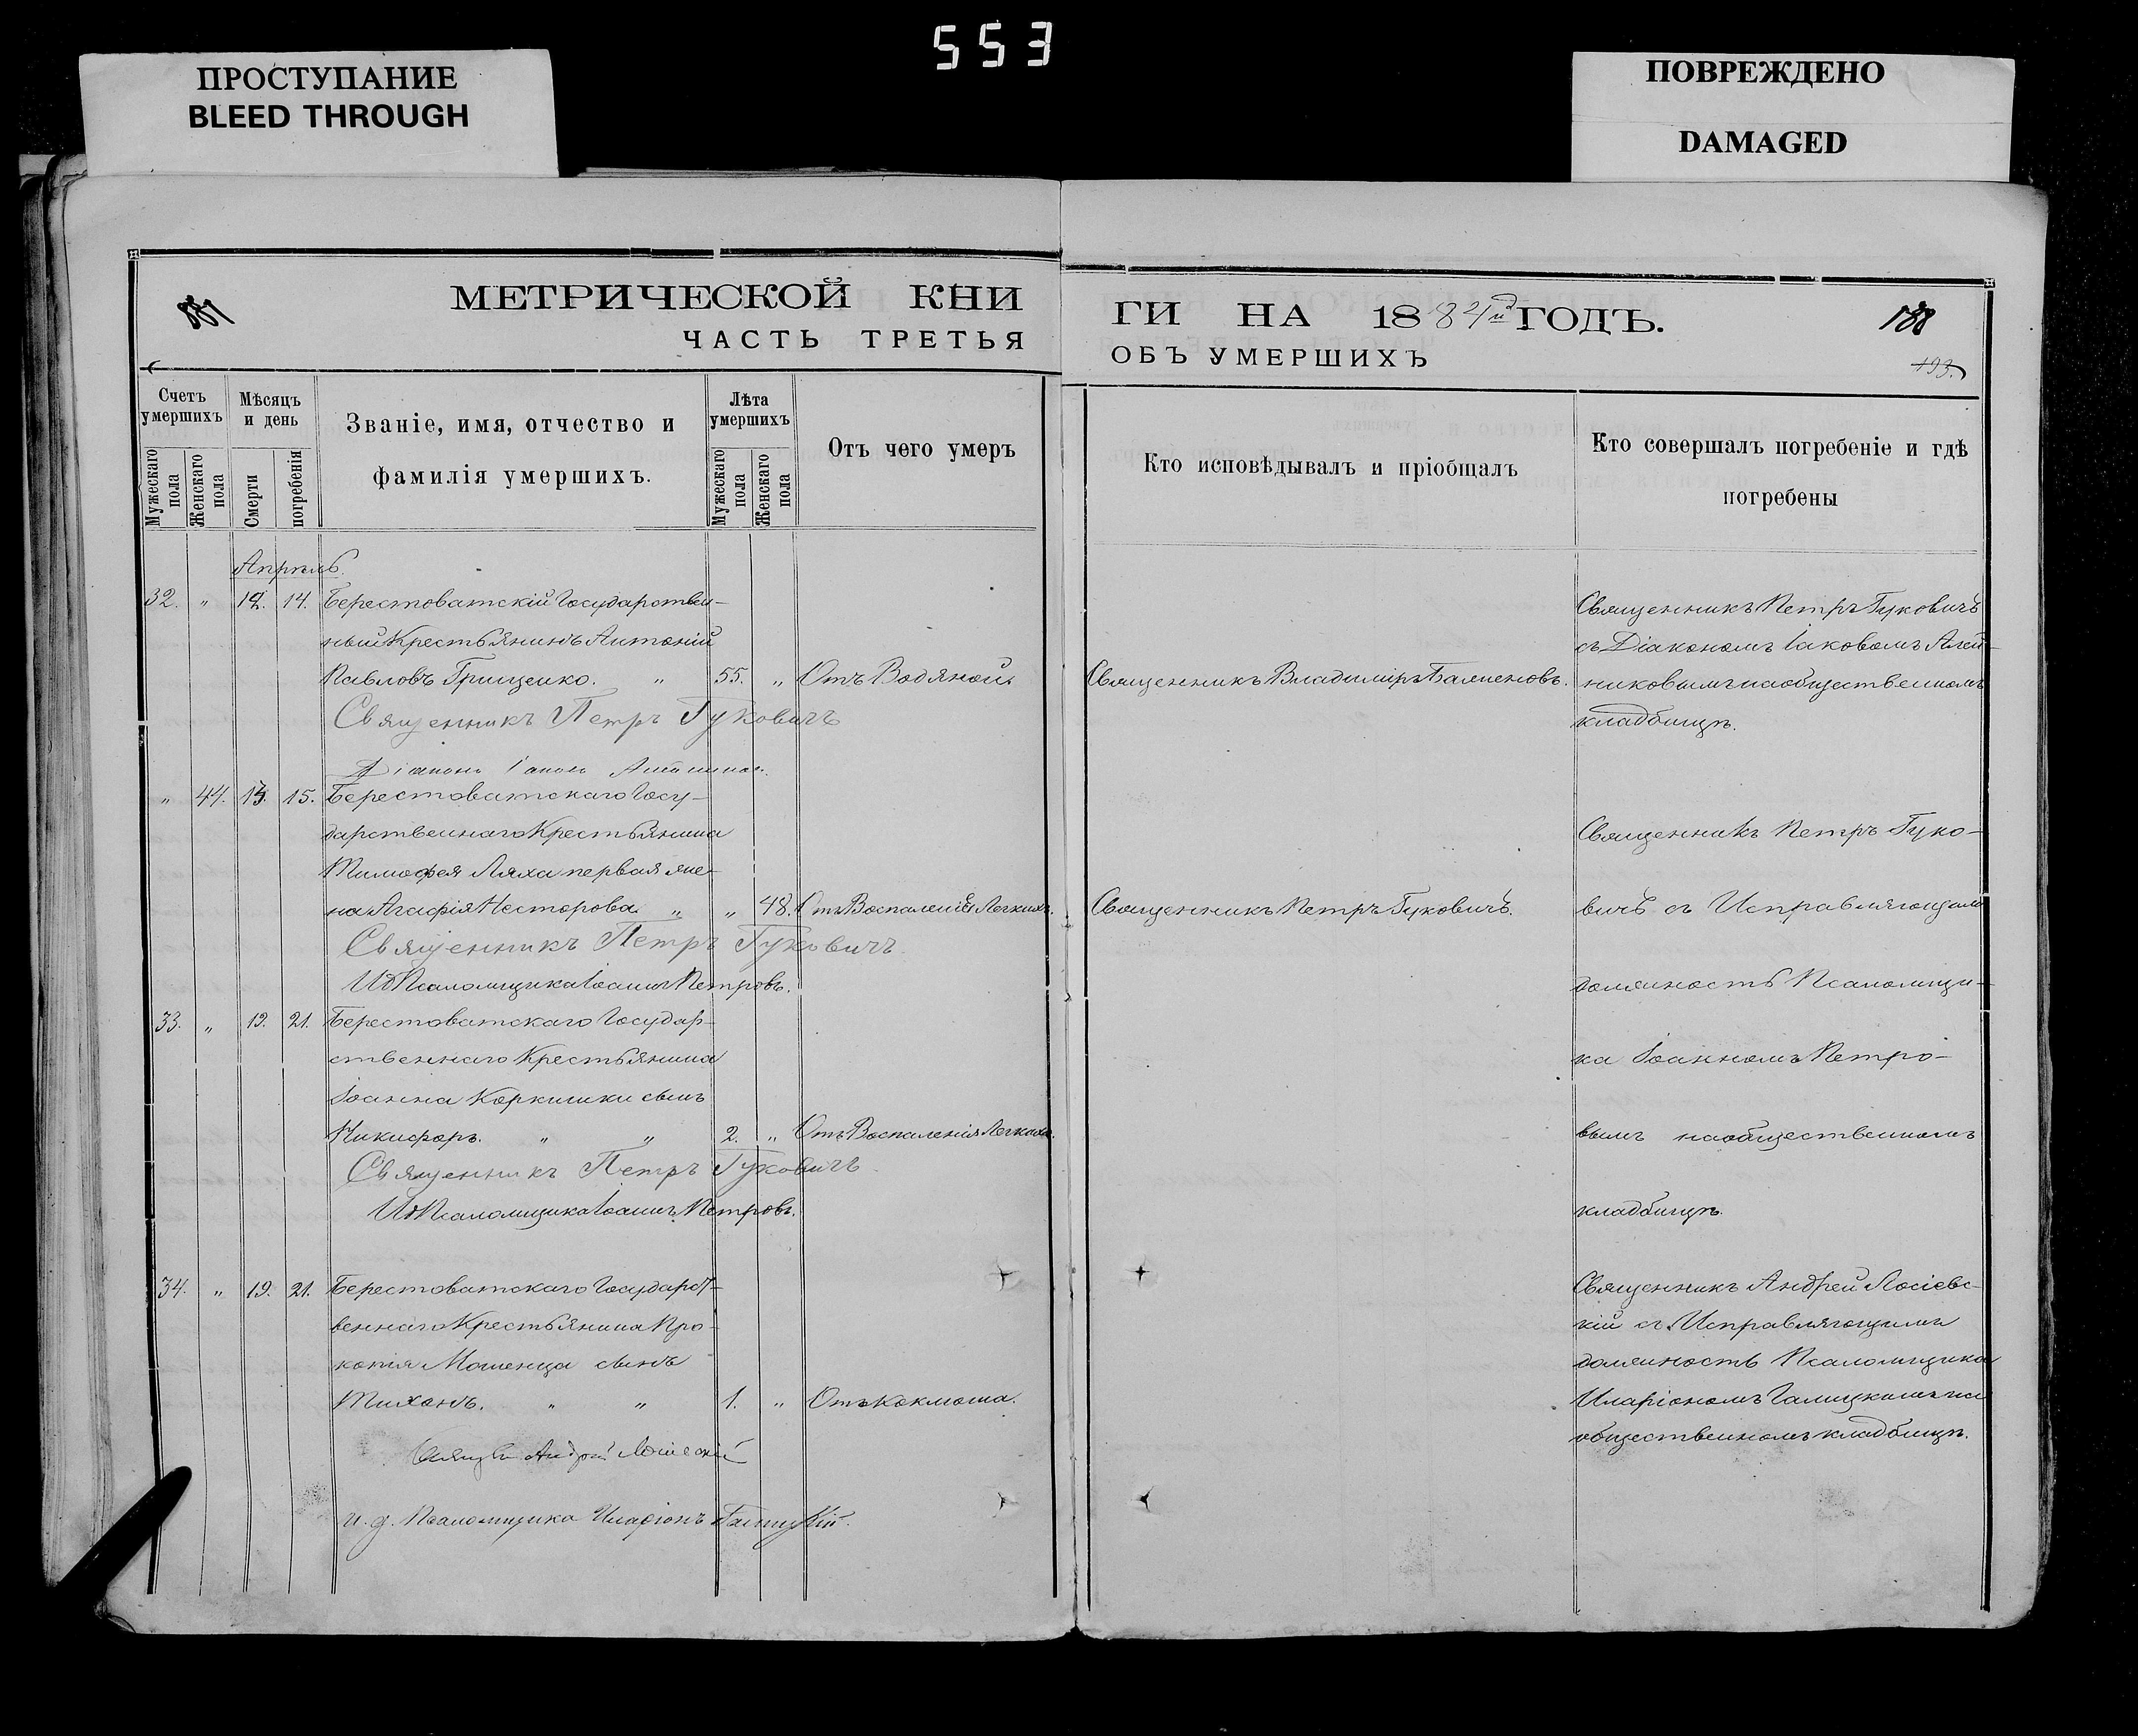 553
ПРОСТУПАНИЕ
BLEED THROUGH
ПОВРЕЖДЕНО
DAMAGED
МЕТРИЧЕСКОЙ КНИ
ЧАСТЬ ТРЕТЬЯ
ГИ НА 1884й ГОДЪ.
ОБЪ УМЕРШИХЪ
188
193.
Счетъ умершихъ
Мужескаго пола
Женскаго пола
Мѣсяцъ и день
Смерти
погребенія
Званіе, имя, отчество и
фамилія умершихъ.
Лѣта умершихъ
Мужескаго пола
Женскаго пола
Отъ чего умеръ
Кто исповѣдывалъ и пріобщалъ
Кто совершалъ погребеніе и гдѣ
погребены
Апрѣль.
32. " 12. 14. Берестоватскій Государствен-
ный Крестьянинъ Антоній
Павловъ Грищенко. " 55. " Отъ Водяной.
Священникъ Владиміръ
Священникъ Петръ Гуковичъ
съ Діакономъ Іаковомъ
никовымъ на общественномъ
кладбищѣ.
Священникъ Петръ Гуковичъ
Діаконъ Іаковъ
" 44. 13. 15. Берестоватскаго Госу-
дарственнаго Крестьянина
Тимофея Ляха первая же-
на Агафія Несторова. " " 48. Отъ Воспаленія Легкихъ.
Священникъ Петръ Гуковичъ.
Священникъ Петръ Гуко-
вичъ съ Исправляющимъ
должность Псаломщи-
ка Іоанномъ Петро-
вымъ на общественномъ
кладбищѣ.
Священникъ Петръ Гуковичъ.
ИД Псаломщика Іоаннъ Петровъ.
33. " 19. 21. Берестоватскаго Государ-
ственнаго Крестьянина
Іоанна Коркишки сынъ
Никифоръ. " " 2. " Отъ Воспаленія Легкихъ.
Священникъ Петръ Гуковичъ.
ИД Псаломщика Іоаннъ Петровъ.
34. " 19. 21. Берестоватскаго Государст-
веннаго Крестьянина Про-
копія сынъ
Тихонъ. " " 1. " Отъ Коклюша.
Священникъ Андрей Лосіевс-
кій съ Исправляющимъ
должность Псаломщика
Иларіономъ Галицкимъ на
общественномъ кладбищѣ.
Андрей Лосіевскій
и. д. Псаломщика Иларіонъ Галицкій.